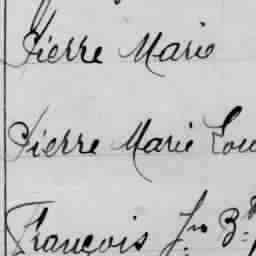 Pierre Marie
Pierre Marie Lou
François Jn B.